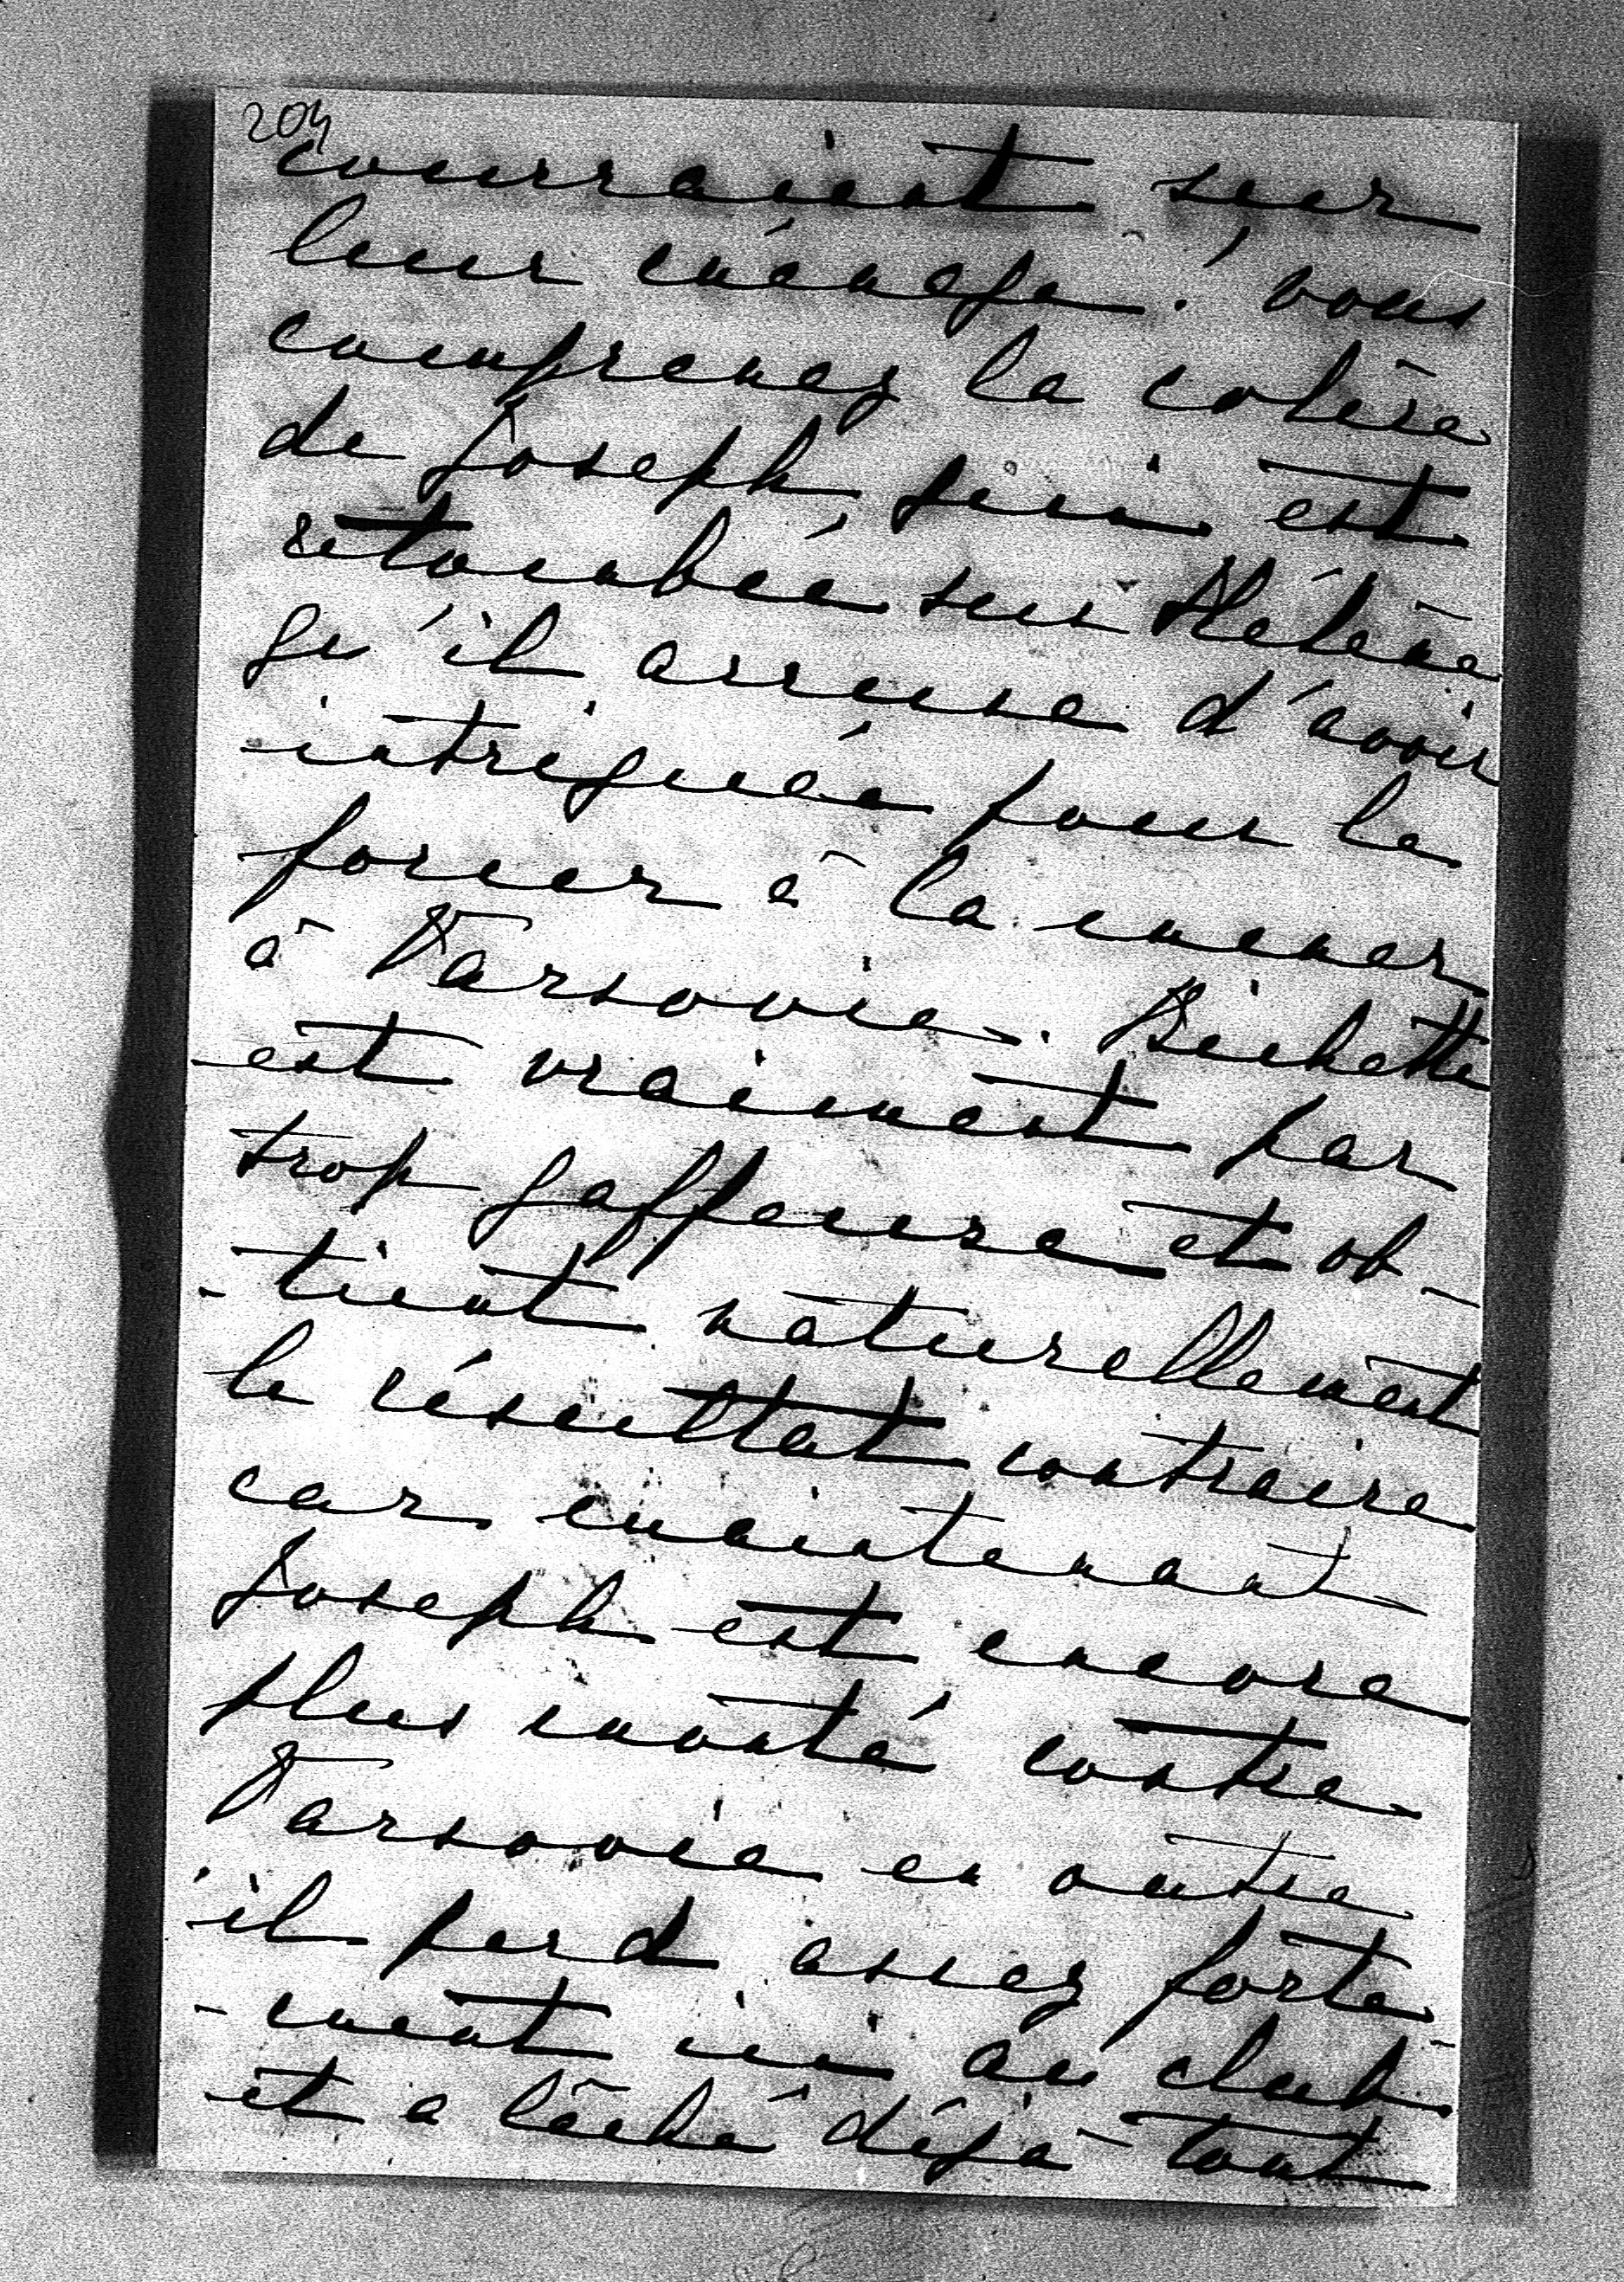 204
courraient sur
leur ménage! vous
comprenez la colère
de Joseph qui est
retombée sur Hélène
qu'il accuse d'avoir
intriguée pour le
forcer à la mener
à Varsovie. Bichette
est vraiment par
trop gaffeuse et ob-
-tient naturellement
le résultat contraire
car maintenant
Joseph est encore
plus monté contre
Varsovie en outre
il perd assez forte-
-ment ici au club
et a lâché déjà tout